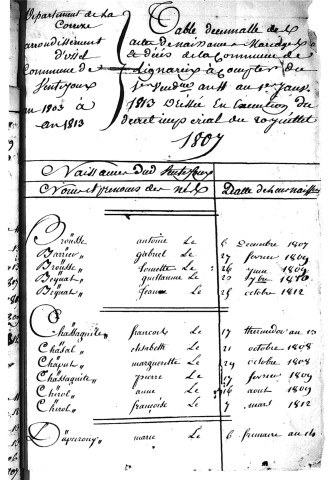 Departement de La
Correze
arrondissement
d'ussel
Commune de
an 1803 à
an 1813
Table decennalle des
actes de naissances Mariages
et décès de la Commune de
Lignareix à Compter du
1er Vendres an 11 au 1er Janv.
1813 Dressée En Execution du
decret imperial du 20 juillet
1807
Naissances Dud
Noms et prenoms des nés Datte de Leur naiss
Brousse antoine Le 6 Decembre 1807
Barrier gabriel Le 27 fevrier 1809
Brousse Le 26 juin 1809
Beynat guillaume Le 20 1810
Beynat Le 25 octobre 1812
Chassagnite francois Le 17 thermidor an 13
Chasal elisabeth Le 21 octobre 1808
Chaput margueritte Le 29 octobre 1808
Chassagnite pierre Le 27 fevrier 1809
Chirol anne Le 18 aout 1809
Chirol françoise Le 7 mars 1812
marie Le 6 frimaire an 14